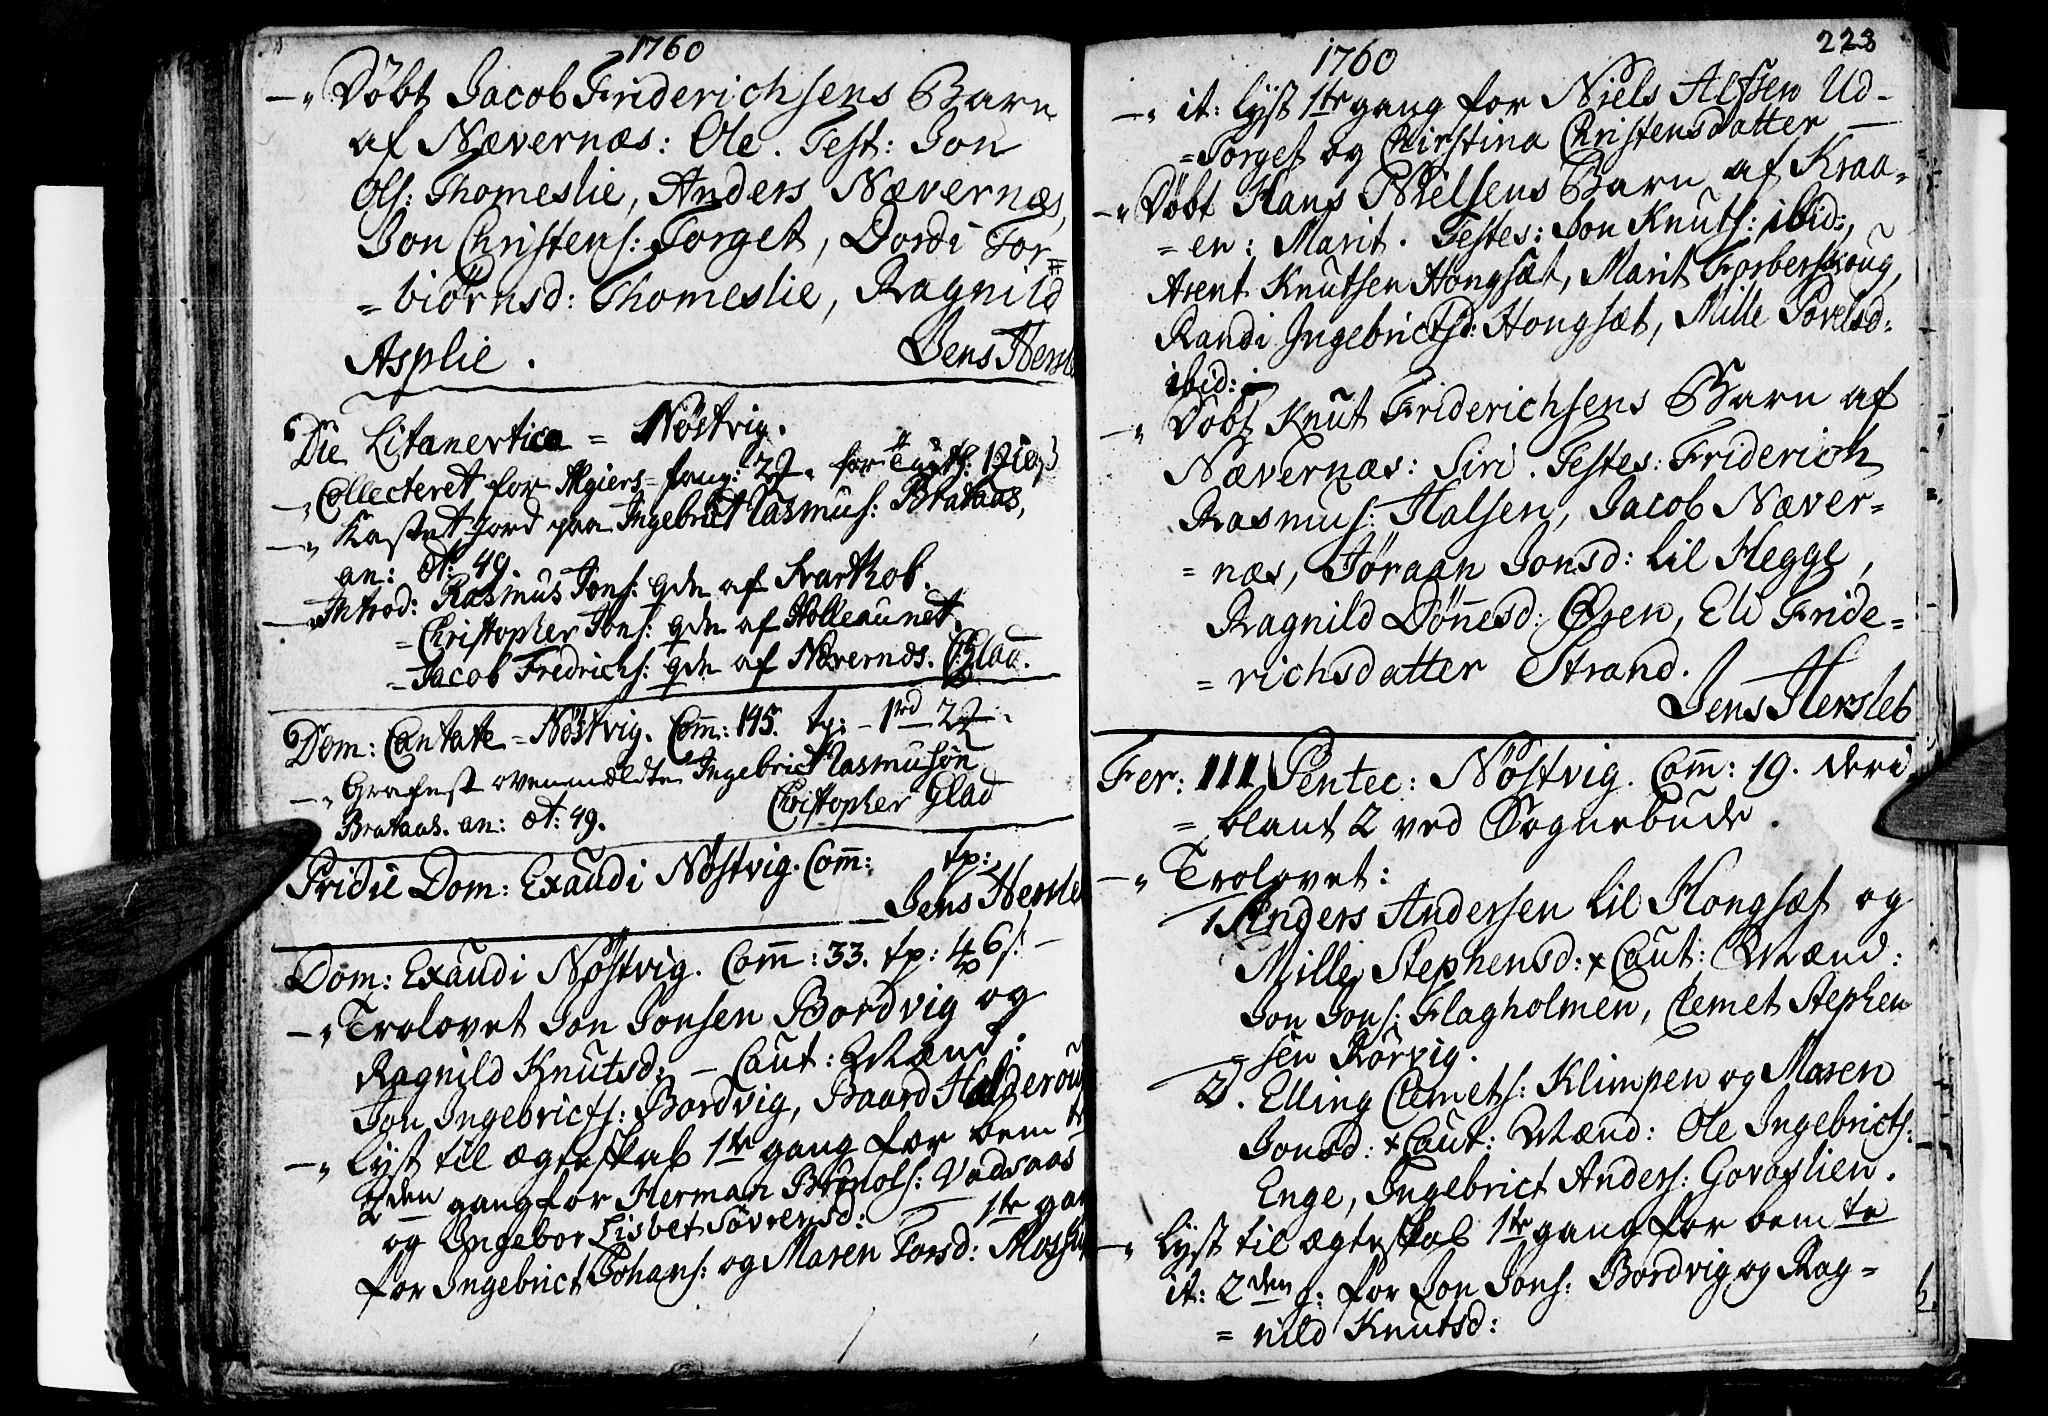 1760
Döbt Jacob Friderichsens Barn
af Nævernæs: Ole. Test: Jon
Ols: Thomeslie, Anders Nævernæs,
Jon Christens: Torget, Dordi Tor=
= biörnsd: Thomeslie, Ragnild
Asplie. Jens Hersle
Die Litanevtica = Nöstvig.
Collecteret for Algiers=fang: 22 for
Kastet Jord paa Ingebrict Rasmus: Brataas,
an: æt: 49.
Introd: Rasmus Jons: qdn af Svarthob.
= Christopher Jons: qdn af Holleaunet.
= Jacob Fredrichs: qdn af Nævernæs. C: Glad.
Dom: Cantate = Nöstvig. Com: 145. tp: - 1rd 22
Grafæst ovenmældte Ingebrict Rasmusön
Brataas. an: æt: 49. Christopher Glad
Pridie Dom: Exaudi Nöstvig. Com: tp:
Jens Hersle
Dom: Exaudi Nöstvig. Com: 33. tp: 4 6 s:
Trolovet Jon Jonsen Bordvig og
Ragnild Knutsd: - Caut: Mænd:
Jon Ingebricts: Bordvig, Baard Halderou
Lyst til ægteskab 1te gang for bem te
2den gang for Herman Brynols: Vadsaas
og Ingebor Lisbet Sövrensd: 1te gan
for Ingebrict Johans: og Maren Torsd: Mosh
1760
223
it: lyst 1te gang for Niels Alfsen Ud-
=Torget og Chirstina Christensdatter
Döbt Hans Nielsens Barn af Kraa-
= en: Marit. Testes: Jon Knuts: ibid:,
Arent Knutsen Hongsæt, Marit Forberskoug,
Randi Ingebrictsd: Hongsæt, Mille Povelsd:
ibid:
Döbt Knut Friderichsens Barn af
Nævernæs: Siri. Testes: Friderich
Rasmus: Halsen, Jacob Næver-
= næs, Jöraan Jonsd: lil Hegge,
Ragnild Dönnesd: Ösen, Eli Fride=
= richsdatter Strand.
Jens Hersleb
Fer: III Pentec: Nöstvig. Com: 19. deri
= blant 2 ved Sognebude.
Trolovet:
1 Anders Andersen lil Hongsæt og
Mille Stephensd: + Caut: Mænd:
Jon Jons: Flagholmen, Clemet Stephen
= sen Rörvig.
2. Elling Clemets: Klimpen og Maren
Jonsd: + Caut: Mænd: Ole Ingebricts:
Enge, Ingebrict Anders: Govaslien.
Lyst til ægteskab 1te gang for bem te
it: 2den g: for Jon Jons: Bordvig og Rag=
= nild Knutsd: